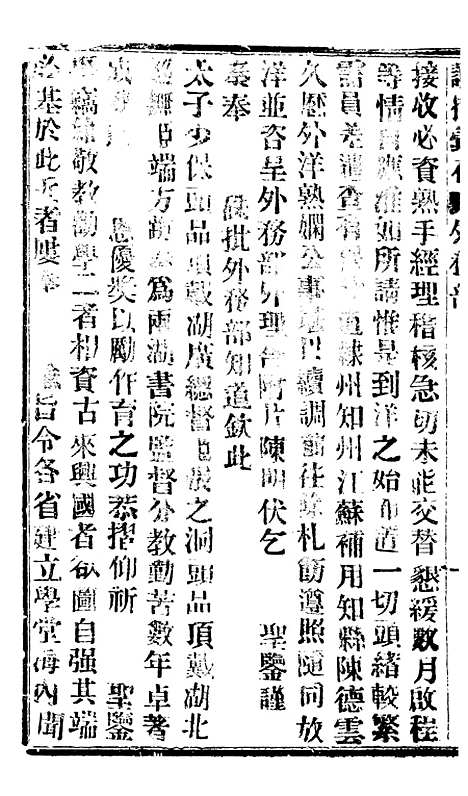 接收必資熟手經理稽核急切未能交替懇緩數月啟程
等情自應准如所請惟是到洋之始布置一切頭緒較繁
需員差遣查有 州知州江蘇補用知縣陳德雲
久歷外洋熟嫻公事 續調前往除札飭遵照隨同放
洋並咨呈外務部外理合附片陳明伏乞 聖鑒謹
奏奉 硃批外務部知道欽此
太子少保頭品頂戴湖廣總督 張之洞頭品頂戴湖北
巡撫 端方 奏為兩湖書院監督分教勤苦數年卓著
成 恩優獎以勵作育之功恭摺仰祈 聖鑒
事竊 敬教勸學二者相資古來興國者欲圖自强其端
必基於此 者屢奉 旨令各省建立學堂海內聞